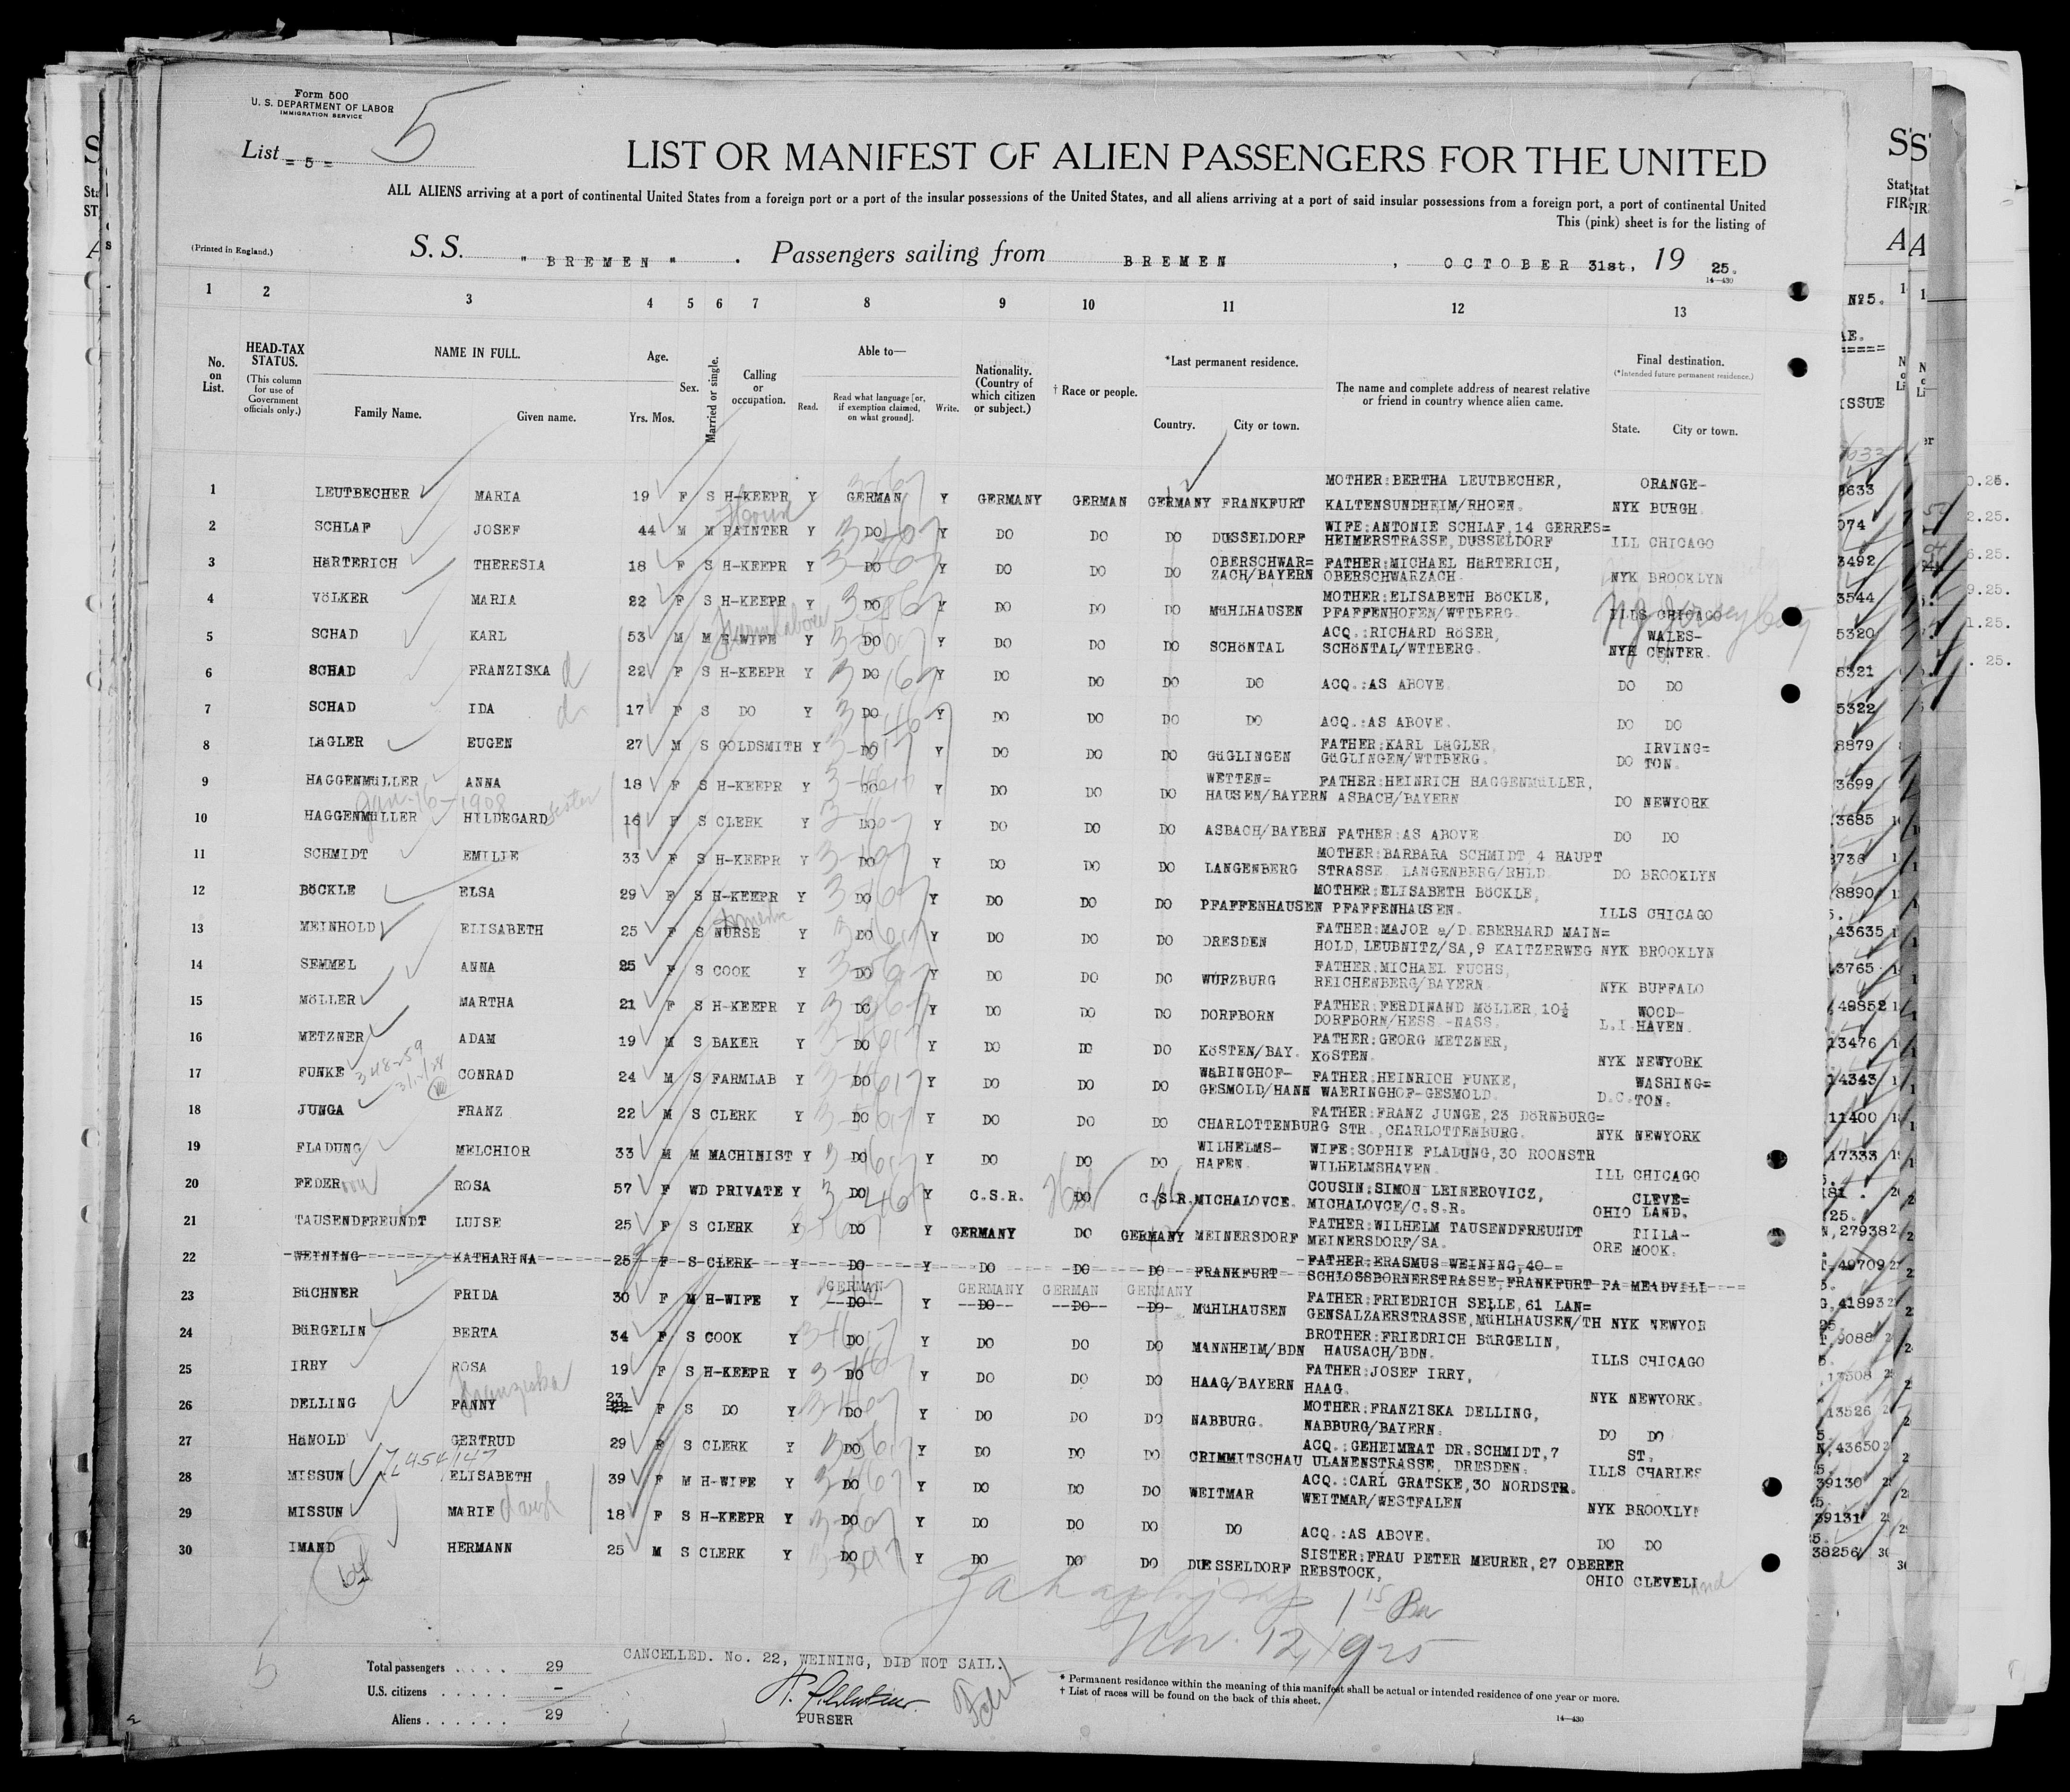 Form 500
U. S. DEPARTMENT OF LABOR
IMMIGRATION SERVICE
5
List = 5 =
LIST OR MANIFEST OF ALIEN PASSENGERS FOR THE UNITED
ALL ALIENS arriving at a port of continental United States from a foreign port or a port of the insular possessions of the United States, and all aliens arriving at a port of said insular possessions from a foreign port, a port of continental United
This (pink) sheet is for the listing of
(Printed in England.)
S. S. " BREMEN " . Passengers sailing from BREMEN , OCTOBER 31st, 19 25.
14—430
1 2 3 4 5 6 7 8 9 10 11 12 13
No. on List.
HEAD-TAX STATUS.
(This column for use of Government officials only.)
NAME IN FULL.
Family Name. Given name.
Age.
Yrs. Mos.
Sex.
Married or single.
Calling or occupation.
Able to—
Read. Read what language [or, if exemption claimed, on what ground]. Write.
Nationality. (Country of which citizen or subject.)
† Race or people.
*Last permanent residence.
Country. City or town.
The name and complete address of nearest relative or friend in country whence alien came.
Final destination.
(*Intended future permanent residence.)
State. City or town.
1 LEUTBECHER MARIA 19 F S H-KEEPR Y GERMAN Y GERMANY GERMAN GERMANY FRANKFURT MOTHER:BERTHA LEUTBECHER, KALTENSUNDHEIM/RHOEN. NYK ORANGE-BURGH.
2 SCHLAF JOSEF 44 M M PAINTER Y DO Y DO DO DO DUSSELDORF WIFE:ANTONIE SCHLAF,14 GERRES= HEIMERSTRASSE,DUSSELDORF ILL CHICAGO
3 HäRTERICH THERESIA 18 F S H-KEEPR Y DO Y DO DO DO OBERSCHWAR= ZACH/BAYERN FATHER:MICHAEL HäRTERICH, OBERSCHWARZACH. NYK BROOKLYN
4 VöLKER MARIA 22 F S H-KEEPR Y DO Y DO DO DO MüHLHAUSEN MOTHER:ELISABETH BöCKLE, PFAFFENHOFEN/WTTBERG. ILLS CHICAGO
N.J. Jersey City
5 SCHAD KARL 53 M M H-WIFE Farmlaborer Y DO Y DO DO DO SCHöNTAL ACQ.:RICHARD RöSER, SCHöNTAL/WTTBERG. NYK WALES-CENTER.
6 SCHAD FRANZISKA d 22 F S H-KEEPR Y DO Y DO DO DO DO ACQ.:AS ABOVE. DO DO
7 SCHAD IDA d 17 F S DO Y DO Y DO DO DO DO ACQ.:AS ABOVE. DO DO
8 LäGLER EUGEN 27 M S GOLDSMITH Y DO Y DO DO DO GüGLINGEN FATHER:KARL LäGLER, GüGLINGEN/WTTBERG. DO IRVING=TON.
9 HAGGENMüLLER ANNA 18 F S H-KEEPR Y DO Y DO DO DO WETTEN= HAUSEN/BAYERN FATHER:HEINRICH HAGGENMüLLER, ASBACH/BAYERN DO NEWYORK
Jan-16-1908 sister
10 HAGGENMüLLER HILDEGARD 16 F S CLERK Y DO Y DO DO DO ASBACH/BAYERN FATHER:AS ABOVE DO DO
11 SCHMIDT EMILIE 33 F S H-KEEPR Y DO Y DO DO DO LANGENBERG MOTHER:BARBARA SCHMIDT,4 HAUPT STRASSE. LANGENBERG/RHLD. DO BROOKLYN
12 BöCKLE ELSA 29 F S H-KEEPR Y DO Y DO DO DO PFAFFENHAUSEN MOTHER:ELISABETH BöCKLE, PFAFFENHAUSEN. ILLS CHICAGO
13 MEINHOLD ELISABETH 25 F S NURSE Y DO Y DO DO DO DRESDEN FATHER:MAJOR a/D.EBERHARD MAIN= HOLD,LEUBNITZ/SA,9 KAITZERWEG NYK BROOKLYN
14 SEMMEL ANNA 25 F S COOK Y DO Y DO DO DO WüRZBURG FATHER:MICHAEL FUCHS, REICHENBERG/BAYERN NYK BUFFALO
15 MöLLER MARTHA 21 F S H-KEEPR Y DO Y DO DO DO DORFBORN FATHER:FERDINAND MöLLER,10½ DORFBORN/HESS.-NASS. L.I. WOOD-HAVEN.
16 METZNER ADAM 19 M S BAKER Y DO Y DO DO DO KöSTEN/BAY. FATHER:GEORG METZNER, KöSTEN. NYK NEWYORK
17 FUNKE 348259 3/12/28 CONRAD 24 M S FARMLAB Y DO Y DO DO DO WäRINGHOF- GESMOLD/HANN FATHER:HEINRICH FUNKE, WAERINGHOF-GESMOLD. D.C. WASHING=TON.
18 JUNGA FRANZ 22 M S CLERK Y DO Y DO DO DO CHARLOTTENBURG FATHER:FRANZ JUNGE,23 DöRNBURG= STR.,CHARLOTTENBURG. NYK NEWYORK
19 FLADUNG MELCHIOR 33 M M MACHINIST Y DO Y DO DO DO WILHELMS- HAFEN. WIFE:SOPHIE FLADUNG,30 ROONSTR WILHELMSHAVEN. ILL CHICAGO
20 FEDER ROSA 57 F WD PRIVATE Y DO Y C.S.R. DO Heb C.S.R. MICHALOVCE. COUSIN:SIMON LEINEROVICZ, MICHALOVCE/C.S.R. OHIO CLEVE=LAND.
21 TAUSENDFREUNDT LUISE 25 F S CLERK Y DO Y GERMANY DO GERMANY MEINERSDORF FATHER:WILHELM TAUSENDFREUNDT MEINERSDORF/SA. ORE TILLA-MOOK.
22 WEINING KATHARINA 25 F S CLERK Y DO Y DO DO DO FRANKFURT FATHER:ERASMUS WEINING,40 SCHLOSSBORNERSTRASSE,FRANKFURT PA MEADVILL
23 BüCHNER FRIDA 30 F M H-WIFE Y GERMAN DO Y GERMANY DO GERMAN DO GERMANY DO MüHLHAUSEN FATHER:FRIEDRICH SELLE,61 LAN= GENSALZAERSTRASSE,MüHLHAUSEN/TH NYK NEWYOR
24 BüRGELIN BERTA 34 F S COOK Y DO Y DO DO DO MANNHEIM/BDN BROTHER:FRIEDRICH BüRGELIN, HAUSACH/BDN. ILLS CHICAGO
25 IRRY ROSA 19 F S H-KEEPR Y DO Y DO DO DO HAAG/BAYERN FATHER:JOSEF IRRY, HAAG. NYK NEWYORK.
Franziska
26 DELLING FANNY 23 F S DO Y DO Y DO DO DO NABBURG. MOTHER:FRANZISKA DELLING, NABBURG/BAYERN. DO DO
27 HäNOLD GERTRUD 29 F S CLERK Y DO Y DO DO DO CRIMMITSCHAU ACQ.:GEHEIMRAT DR.SCHMIDT,7 ULANENSTRASSE, DRESDEN. ILLS ST. CHARLES
28 MISSUN ELISABETH 39 F M H-WIFE Y DO Y DO DO DO WEITMAR ACQ.:CARL GRATSKE,30 NORDSTR. WEITMAR/WESTFALEN NYK BROOKLYN
29 MISSUN MARIE daugh 18 F S H-KEEPR Y DO Y DO DO DO DO ACQ.:AS ABOVE. DO DO
30 IMAND HERMANN 25 M S CLERK Y DO Y DO DO DO DUESSELDORF SISTER:FRAU PETER MEURER,27 OBERER REBSTOCK, OHIO CLEVELand
Nov. 12, 1925
CANCELLED. No. 22, WEINING, DID NOT SAIL.
Total passengers . . . . . 29
U.S. citizens . . . . . . –
Aliens . . . . . . 29
PURSER
* Permanent residence within the meaning of this manifest shall be actual or intended residence of one year or more.
† List of races will be found on the back of this sheet.
14—430